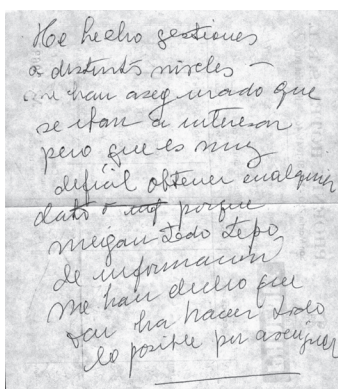 He hecho gestiones
a distintos niveles –
me han asegurado que
se iban a interesar
pero que es muy
dificil obtener cualquier
dato o porque
niegan todo tipo
de información
me han dicho que
van ha hacer todo
lo posible por averiguar